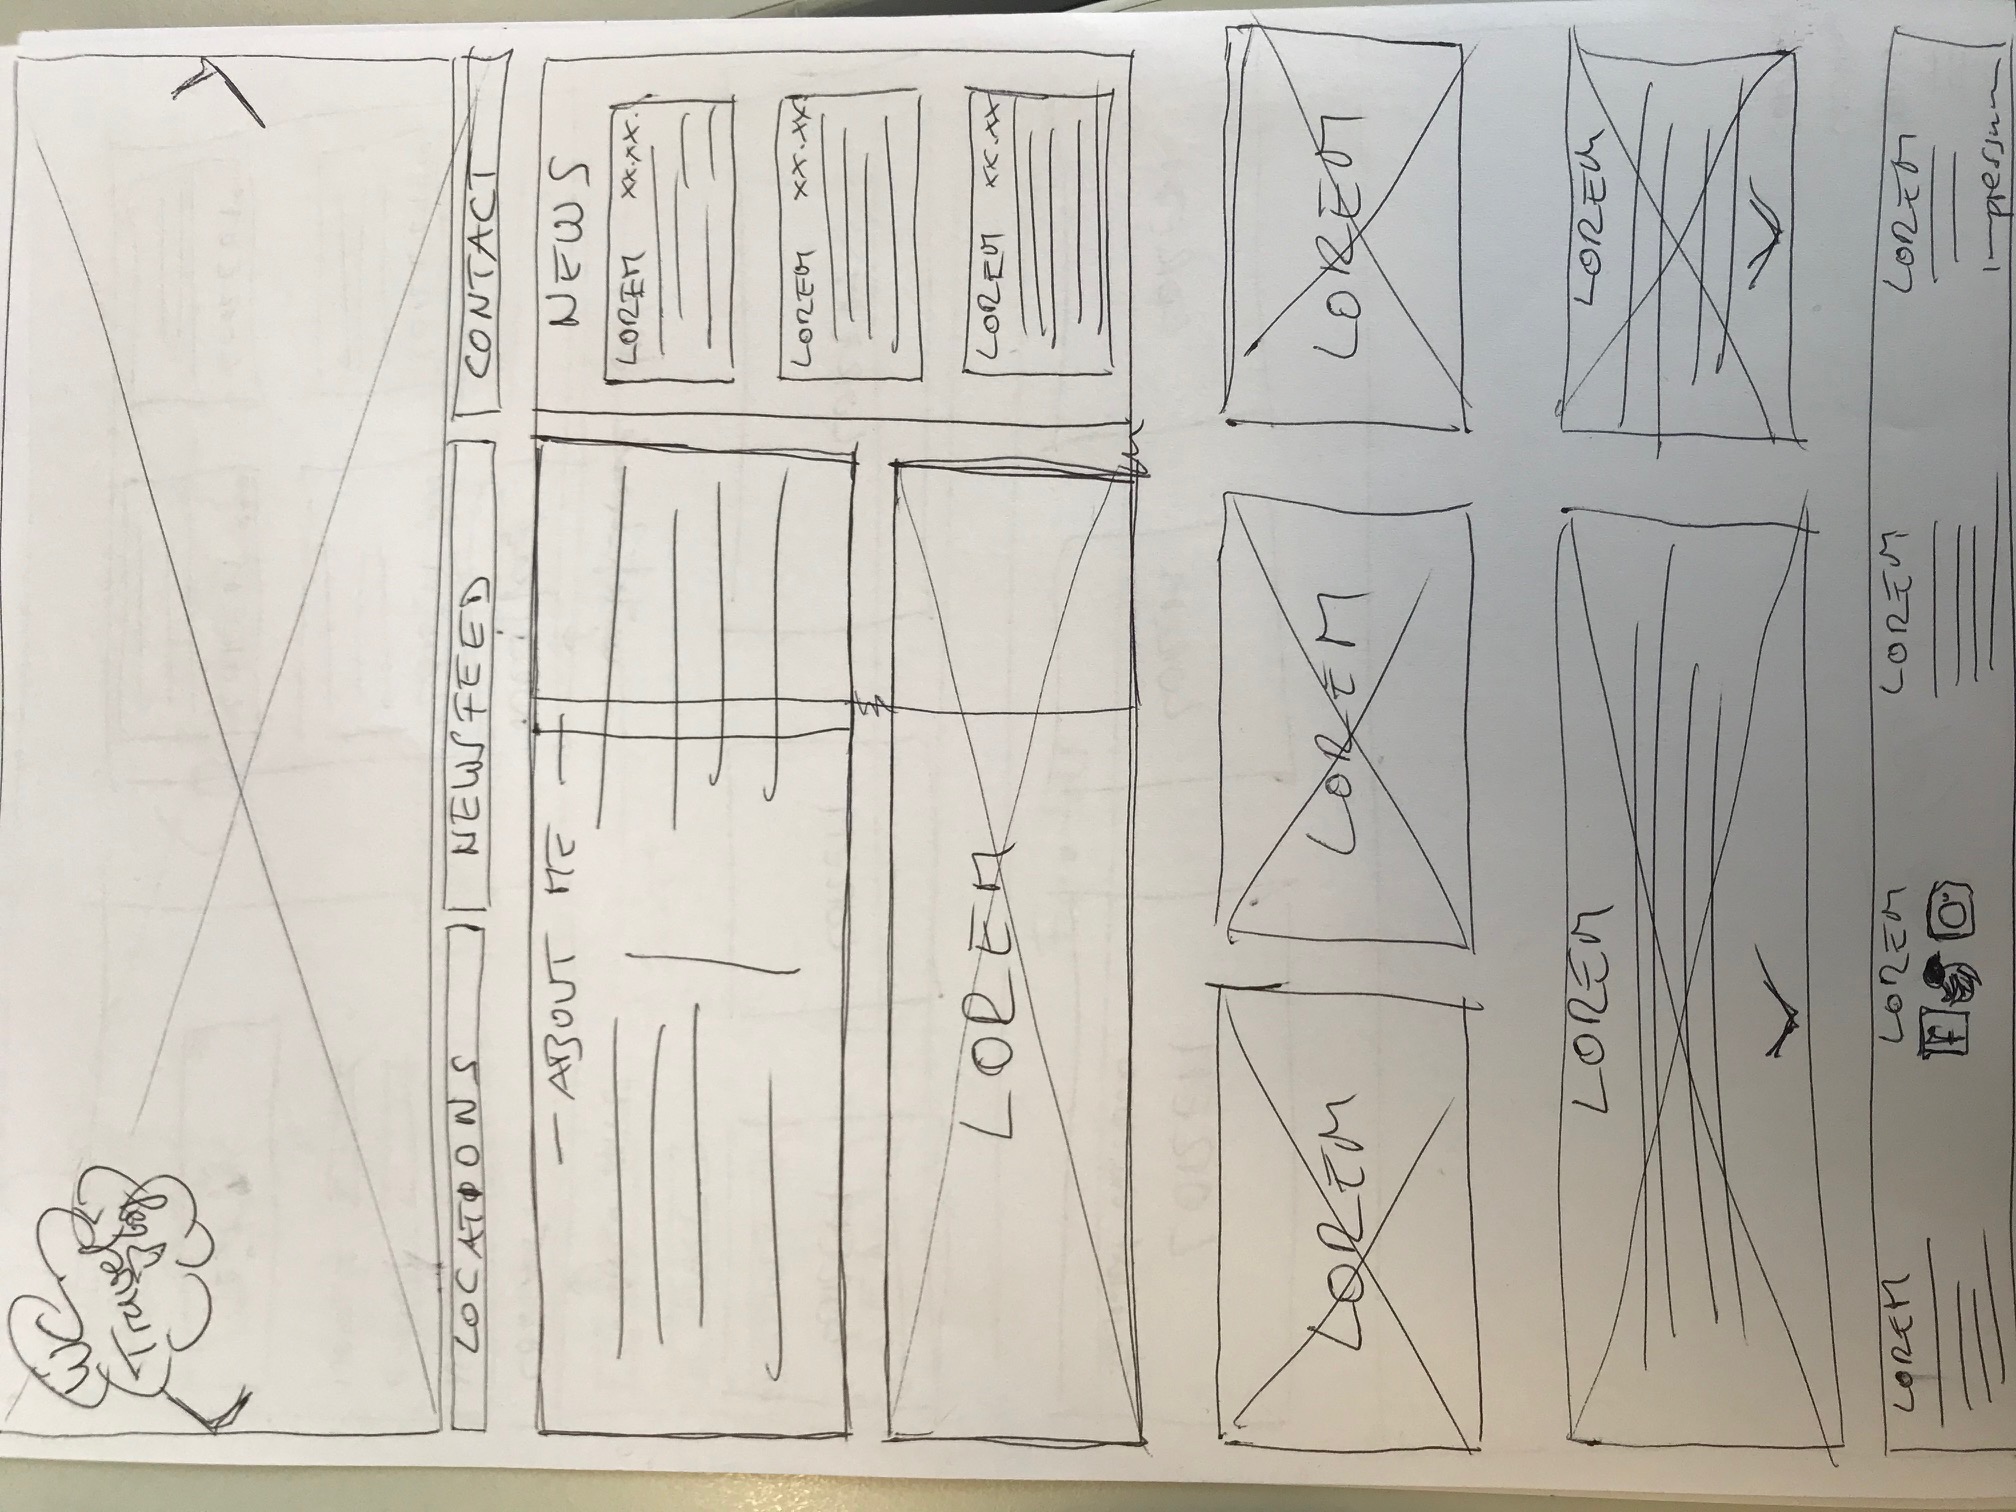 WC
Travel
Blog
LOCATIONS NEWSFEED CONTACT
ABOUT ME
NEWS
LOREM xx.xx.
LOREM xx.xx.
LOREM
LOREM xx.xx
LOREM LOREM LOREM
LOREM LOREM
LOREM LOREM LOREM LOREM
F
Impressum